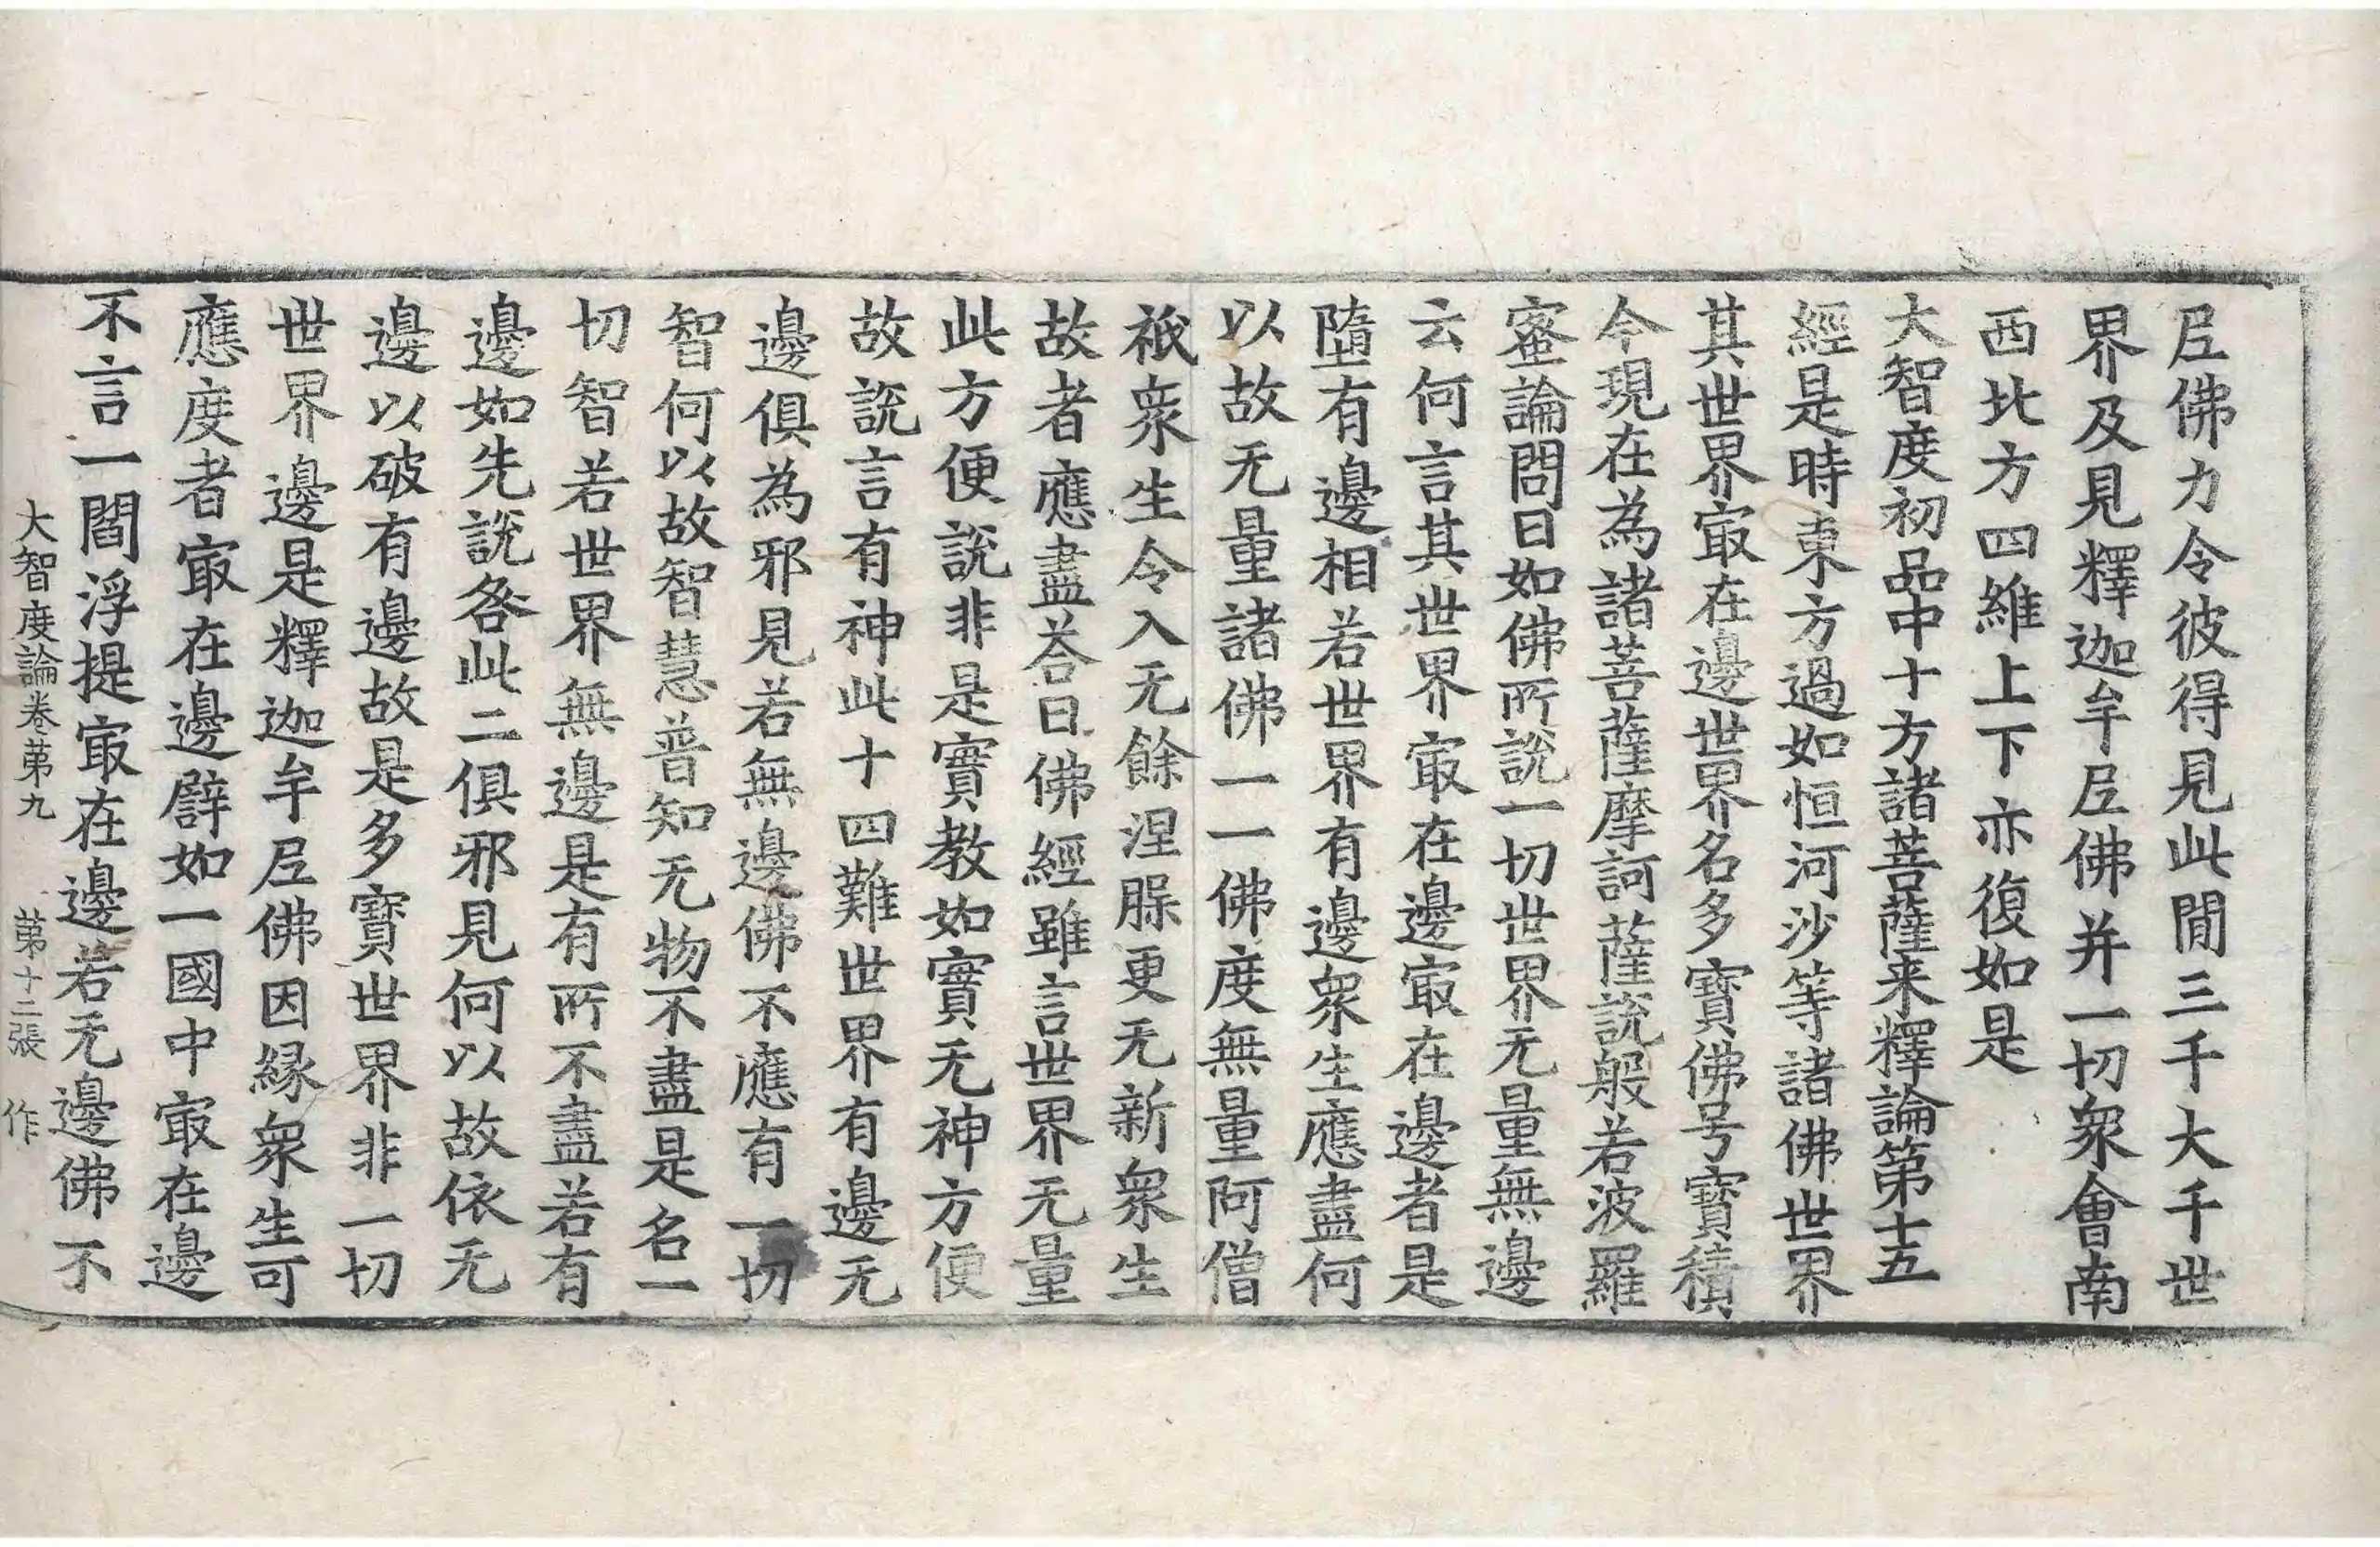 尼佛力令彼得見此閒三千大千世
界及見釋迦牟尼佛并一切衆會南
西北方四維上下亦復如是
大智度初品中十方諸菩薩来釋論第十五
經是時東方過如恒河沙等諸佛世界
其世界㝡在邊世界名多寶佛号寶積
今現在為諸菩薩摩訶薩說般若波羅
蜜論問曰如佛所說一切世界无量無邊
云何言其世界㝡在邊㝡在邊者是
墮有邊相若世界有邊衆生應盡何
以故无量諸佛一一佛度無量阿僧
祇衆生令入无餘涅槃更无新衆生
故者應盡荅曰佛經雖言世界无量
此方便說非是實教如實无神方便
故說言有神此十四難世界有邊无
邊俱為邪見若無邊佛不應有一切
智何以故智慧普知无物不盡是名一
切智若世界無邊是有所不盡若有
邊如先說咎此二俱邪見何以故依无
邊以破有邊故是多寶世界非一切
世界邊是釋迦牟尼佛因緣衆生可
應度者㝡在邊譬如一國中㝡在邊
不言一閻浮提㝡在邊若无邊佛不
大智度論卷第九 第十二張 作